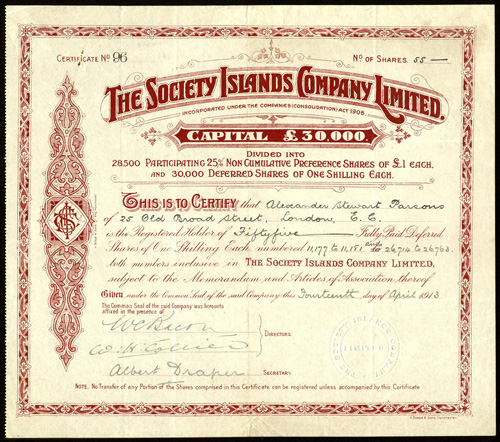 CERTIFICATE No 96
No OF SHARES. 55 —
THE SOCIETY ISLANDS COMPANY LIMITED.
INCORPORATED UNDER THE COMPANIES (CONSOLIDATION) ACT 1908.
CAPITAL £30,000.
DIVIDED INTO
28,500 PARTICIPATING 25% NON CUMULATIVE PREFERENCE SHARES OF £1 EACH,
AND 30,000 DEFERRED SHARES OF ONE SHILLING EACH.
THIS IS TO CERTIFY that Alexander Stewart Parsons
of 25 Old Broad Street, London, E.C.
is the Registered Holder of Fiftyfive — Fully Paid Deferred
Shares of One Shilling Each, numbered 11,177 to 11,181 and to 26,714 to 26,763
both numbers inclusive in THE SOCIETY ISLANDS COMPANY LIMITED,
subject to the Memorandum and Articles of Association thereof
Given under the Common Seal of the said Company this Fourteenth day of April 1913
The Common Seal of the said Company was hereunto
affixed in the presence of
DIRECTORS.
Albert Draper
SECRETARY.
THE SOCIETY ISLANDS COMPANY
LIMITED
NOTE. No Transfer of any Portion of the Shares comprised in this Certificate can be registered unless accompanied by this Certificate